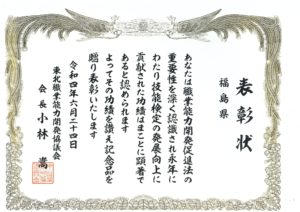 表彰状
福島県
あなたは職業能力開発促進法の
重要性を深く認識され永年に
わたり技能検定の発展向上に
貢献された功績はまことに顕著で
あると認められます
よってその功績を讃え記念品を
贈り表彰いたします
令和四年六月二十四日
東北職業能力開発協議会
会長 小林 嵩